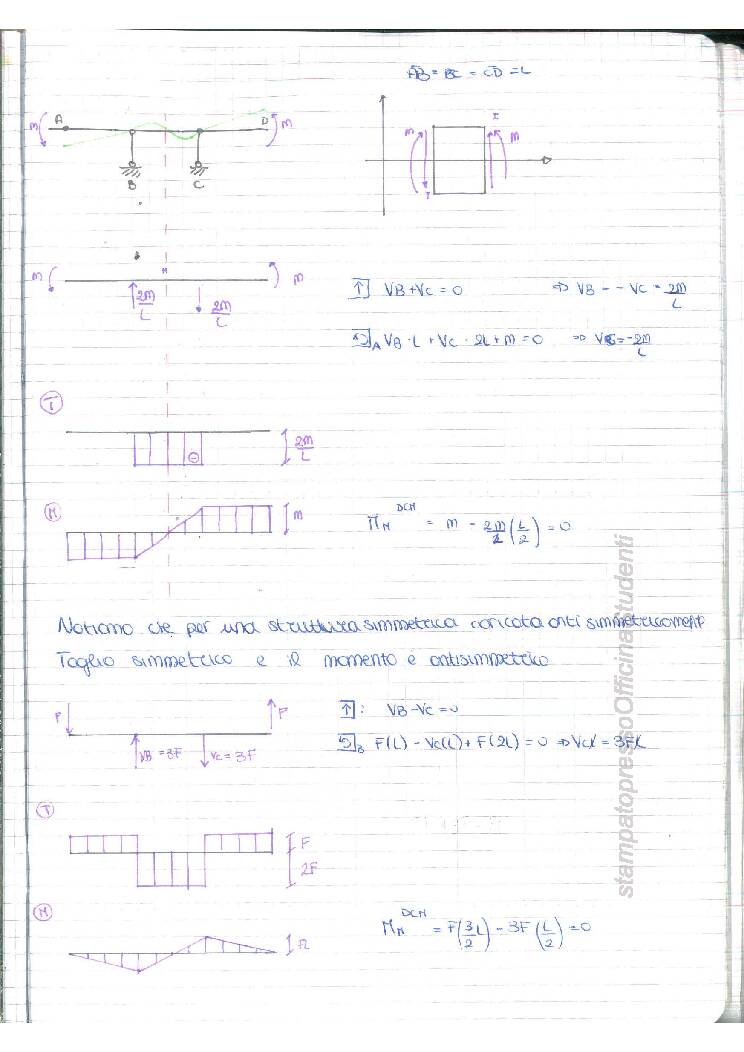 AB = BC = CD = L
A D
m m
B C
m m
T T
m m
2m/L 2m/L
↑ VB + VC = 0 ⇒ VB = - VC = 2m/L
↺A VB · L + VC · 2L + m = 0 ⇒ VC = -2m/L
T
⊖ 2m/L
M
m
M_M^DCM = m - 2m/L (L/2) = 0
Notiamo che per una struttura simmetrica caricata anti simmetricament
Taglio simmetrico e il momento e antisimmetrico
P P
VB = 3F VC = 3F
↑ : VB - VC = 0
↺B F(L) - VC(L) + F(2L) = 0 ⇒ VC = 3F
T
F
2F
M
FL
M_M^DCM = F(3L/2) - 3F(L/2) = 0
stampatopressoOfficinaStudenti